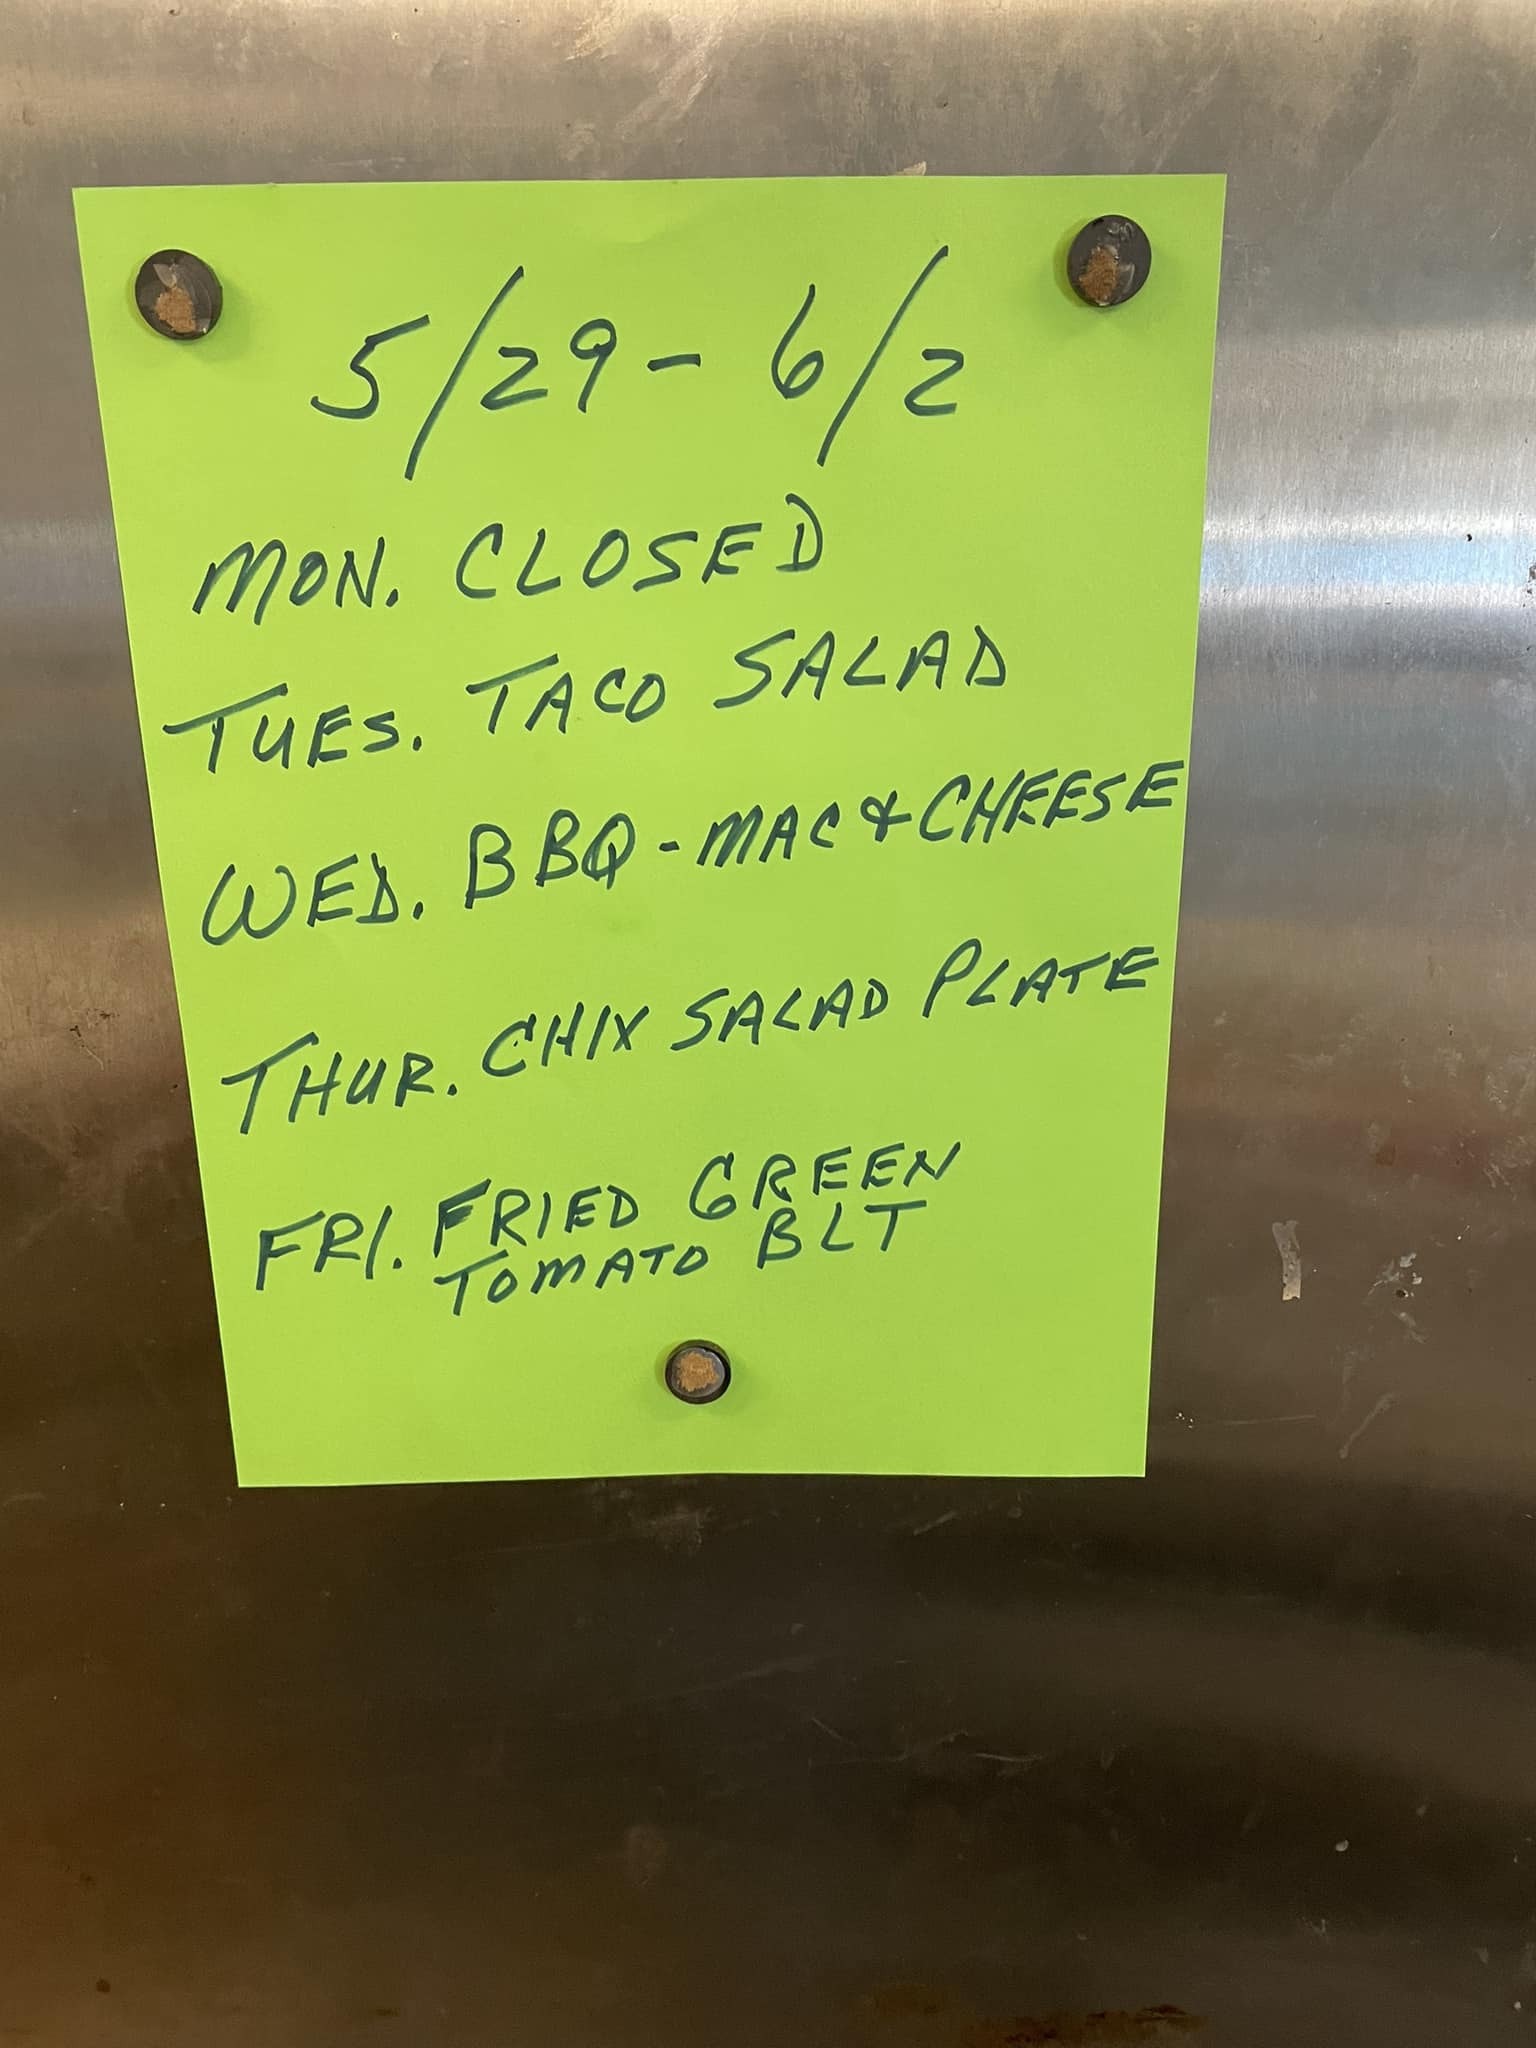 5/29 - 6/2
MON. CLOSED
TUES. TACO SALAD
WED. BBQ - MAC & CHEESE
THUR. CHIX SALAD PLATE
FRI. FRIED GREEN
TOMATO BLT